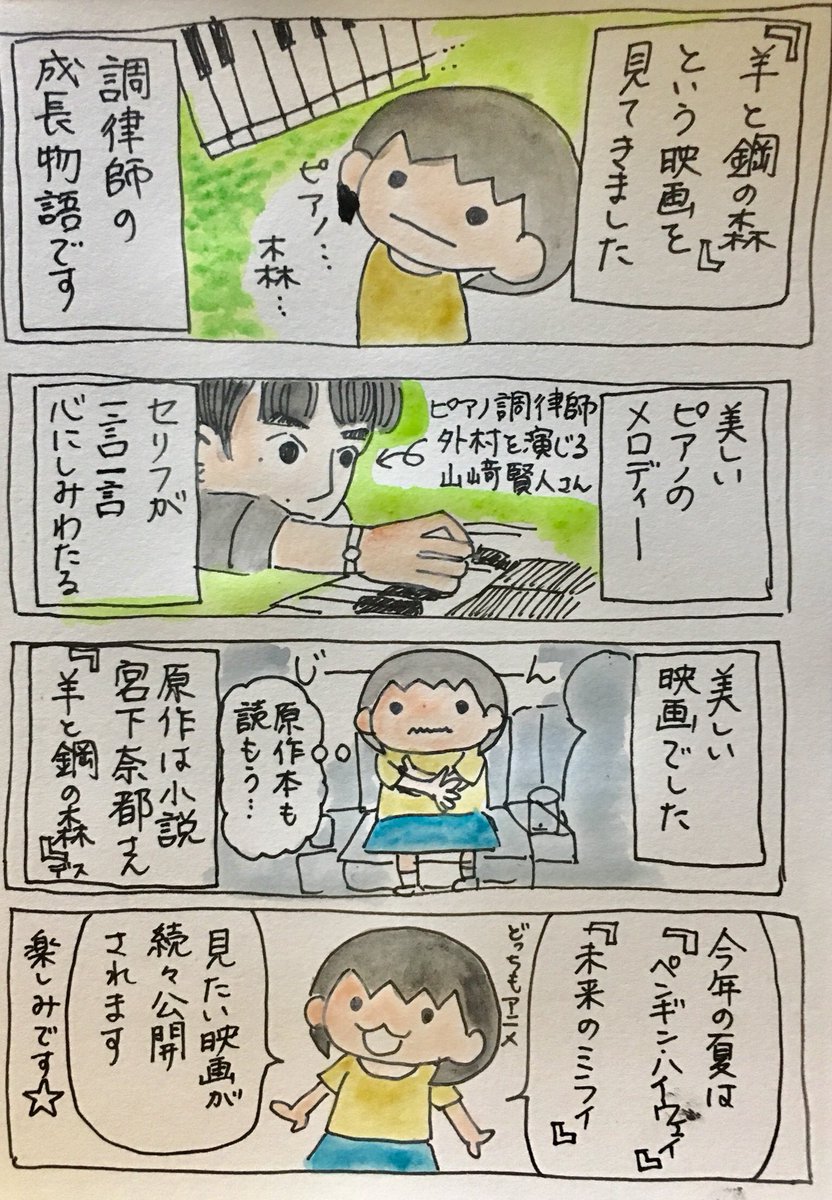 『羊と鋼の森』
という映画を
見てきました
ピアノ…
森…
調律師の
成長物語です
美しい
ピアノの
メロディー
ピアノ調律師
外村を演じる
山﨑賢人さん
セリフが
一言一言
心にしみわたる
美しい
映画でした
じーーん
原作本も
読もう…
原作は小説
宮下奈都さん
『羊と鋼の森』デス
今年の夏は
『ペンギン・ハイウェイ』
『未来のミライ』
どっちもアニメ
見たい映画が
続々公開
されます
楽しみです☆